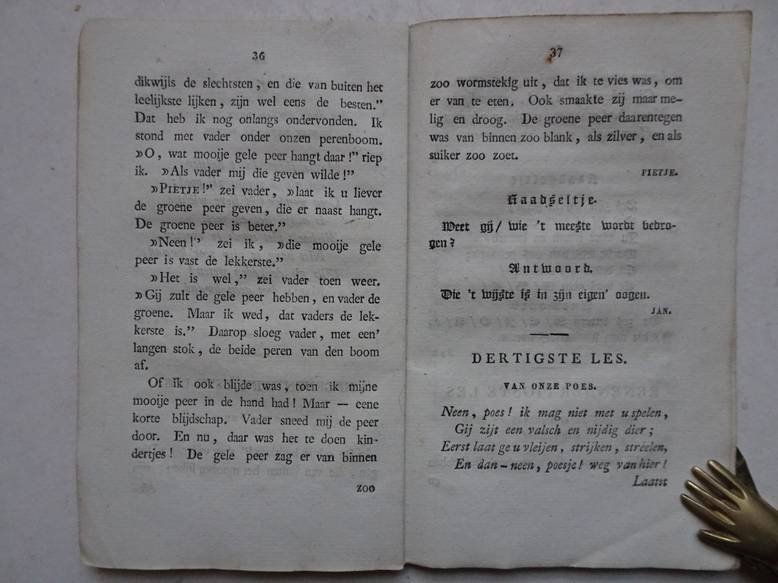 36
dikwijls de slechtsten, en die van buiten het
leelijkste lijken, zijn wel eens de besten.”
Dat heb ik nog onlangs ondervonden. Ik
stond met vader onder onzen perenboom.
»O, wat mooije gele peer hangt daar!” riep
ik. »Als vader mij die geven wilde!”
»PIETJE!” zei vader, »laat ik u liever
de groene peer geven, die er naast hangt.
De groene peer is beter.”
»Neen!” zei ik, »die mooije gele
peer is vast de lekkerste.”
»Het is wel,” zei vader toen weer.
»Gij zult de gele peer hebben, en vader de
groene. Maar ik wed, dat vaders de lek-
kerste is.” Daarop sloeg vader, met een’
langen stok, de beide peren van den boom
af.
Of ik ook blijde was, toen ik mijne
mooije peer in de hand had! Maar — eene
korte blijdschap. Vader sneed mij de peer
door. En nu, daar was het te doen kin-
dertjes! De gele peer zag er van binnen
zoo
37
zoo wormstekig uit, dat ik te vies was, om
er van te eten. Ook smaakte zij maar me-
lig en droog. De groene peer daarentegen
was van binnen zoo blank, als zilver, en als
suiker zoo zoet.
PIETJE.
Raadseltje.
Weet gij/ wie 't meeste wordt bedro-
gen?
Antwoord.
Die 't wijste is in zijn eigen' oogen.
JAN.
DERTIGSTE LES.
VAN ONZE POES.
Neen, poes! ik mag niet met u spelen,
Gij zijt een valsch en nijdig dier;
Eerst laat ge u vleijen, strijken, streelen,
En dan – neen, poesje! weg van hier!
Laatst